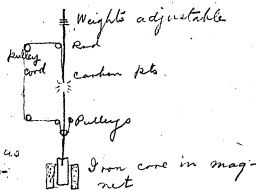 Weights adjustable
Rod
pulley
cord
carbon pts.
Pulleys
Iron core in mag-
net